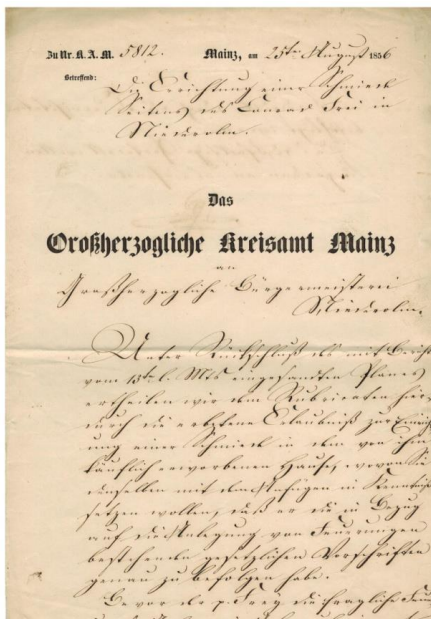 Zu Nr. K. A. M. 5812.
Mainz, am 25ten August 1856
Betreffend:
Die Errichtung einer Schmiede
Seitens des Conrad Frei in
Niederolm.
Das
Großherzogliche Kreisamt Mainz
an
Großherzogliche Bürgermeisterei
Niederolm
Unter Rückschluß des mit Bericht
vom 13ten l. Mts eingesandten Planes
ertheilen wir dem Rubricaten hier-
durch die erbetene Erlaubniß zur Einricht
ung einer Schmiede in dem von ihm
käuflich erworbenen Hause, wovon Sie
denselben mit dem Anfügen in Kenntniß
setzen wollen, daß er die in Bezug
auf die Anlegung von Feuerungen
bestehenden gesetzlichen Vorschriften
genau zu befolgen habe.
Bevor der p. Frey die fragliche Feue